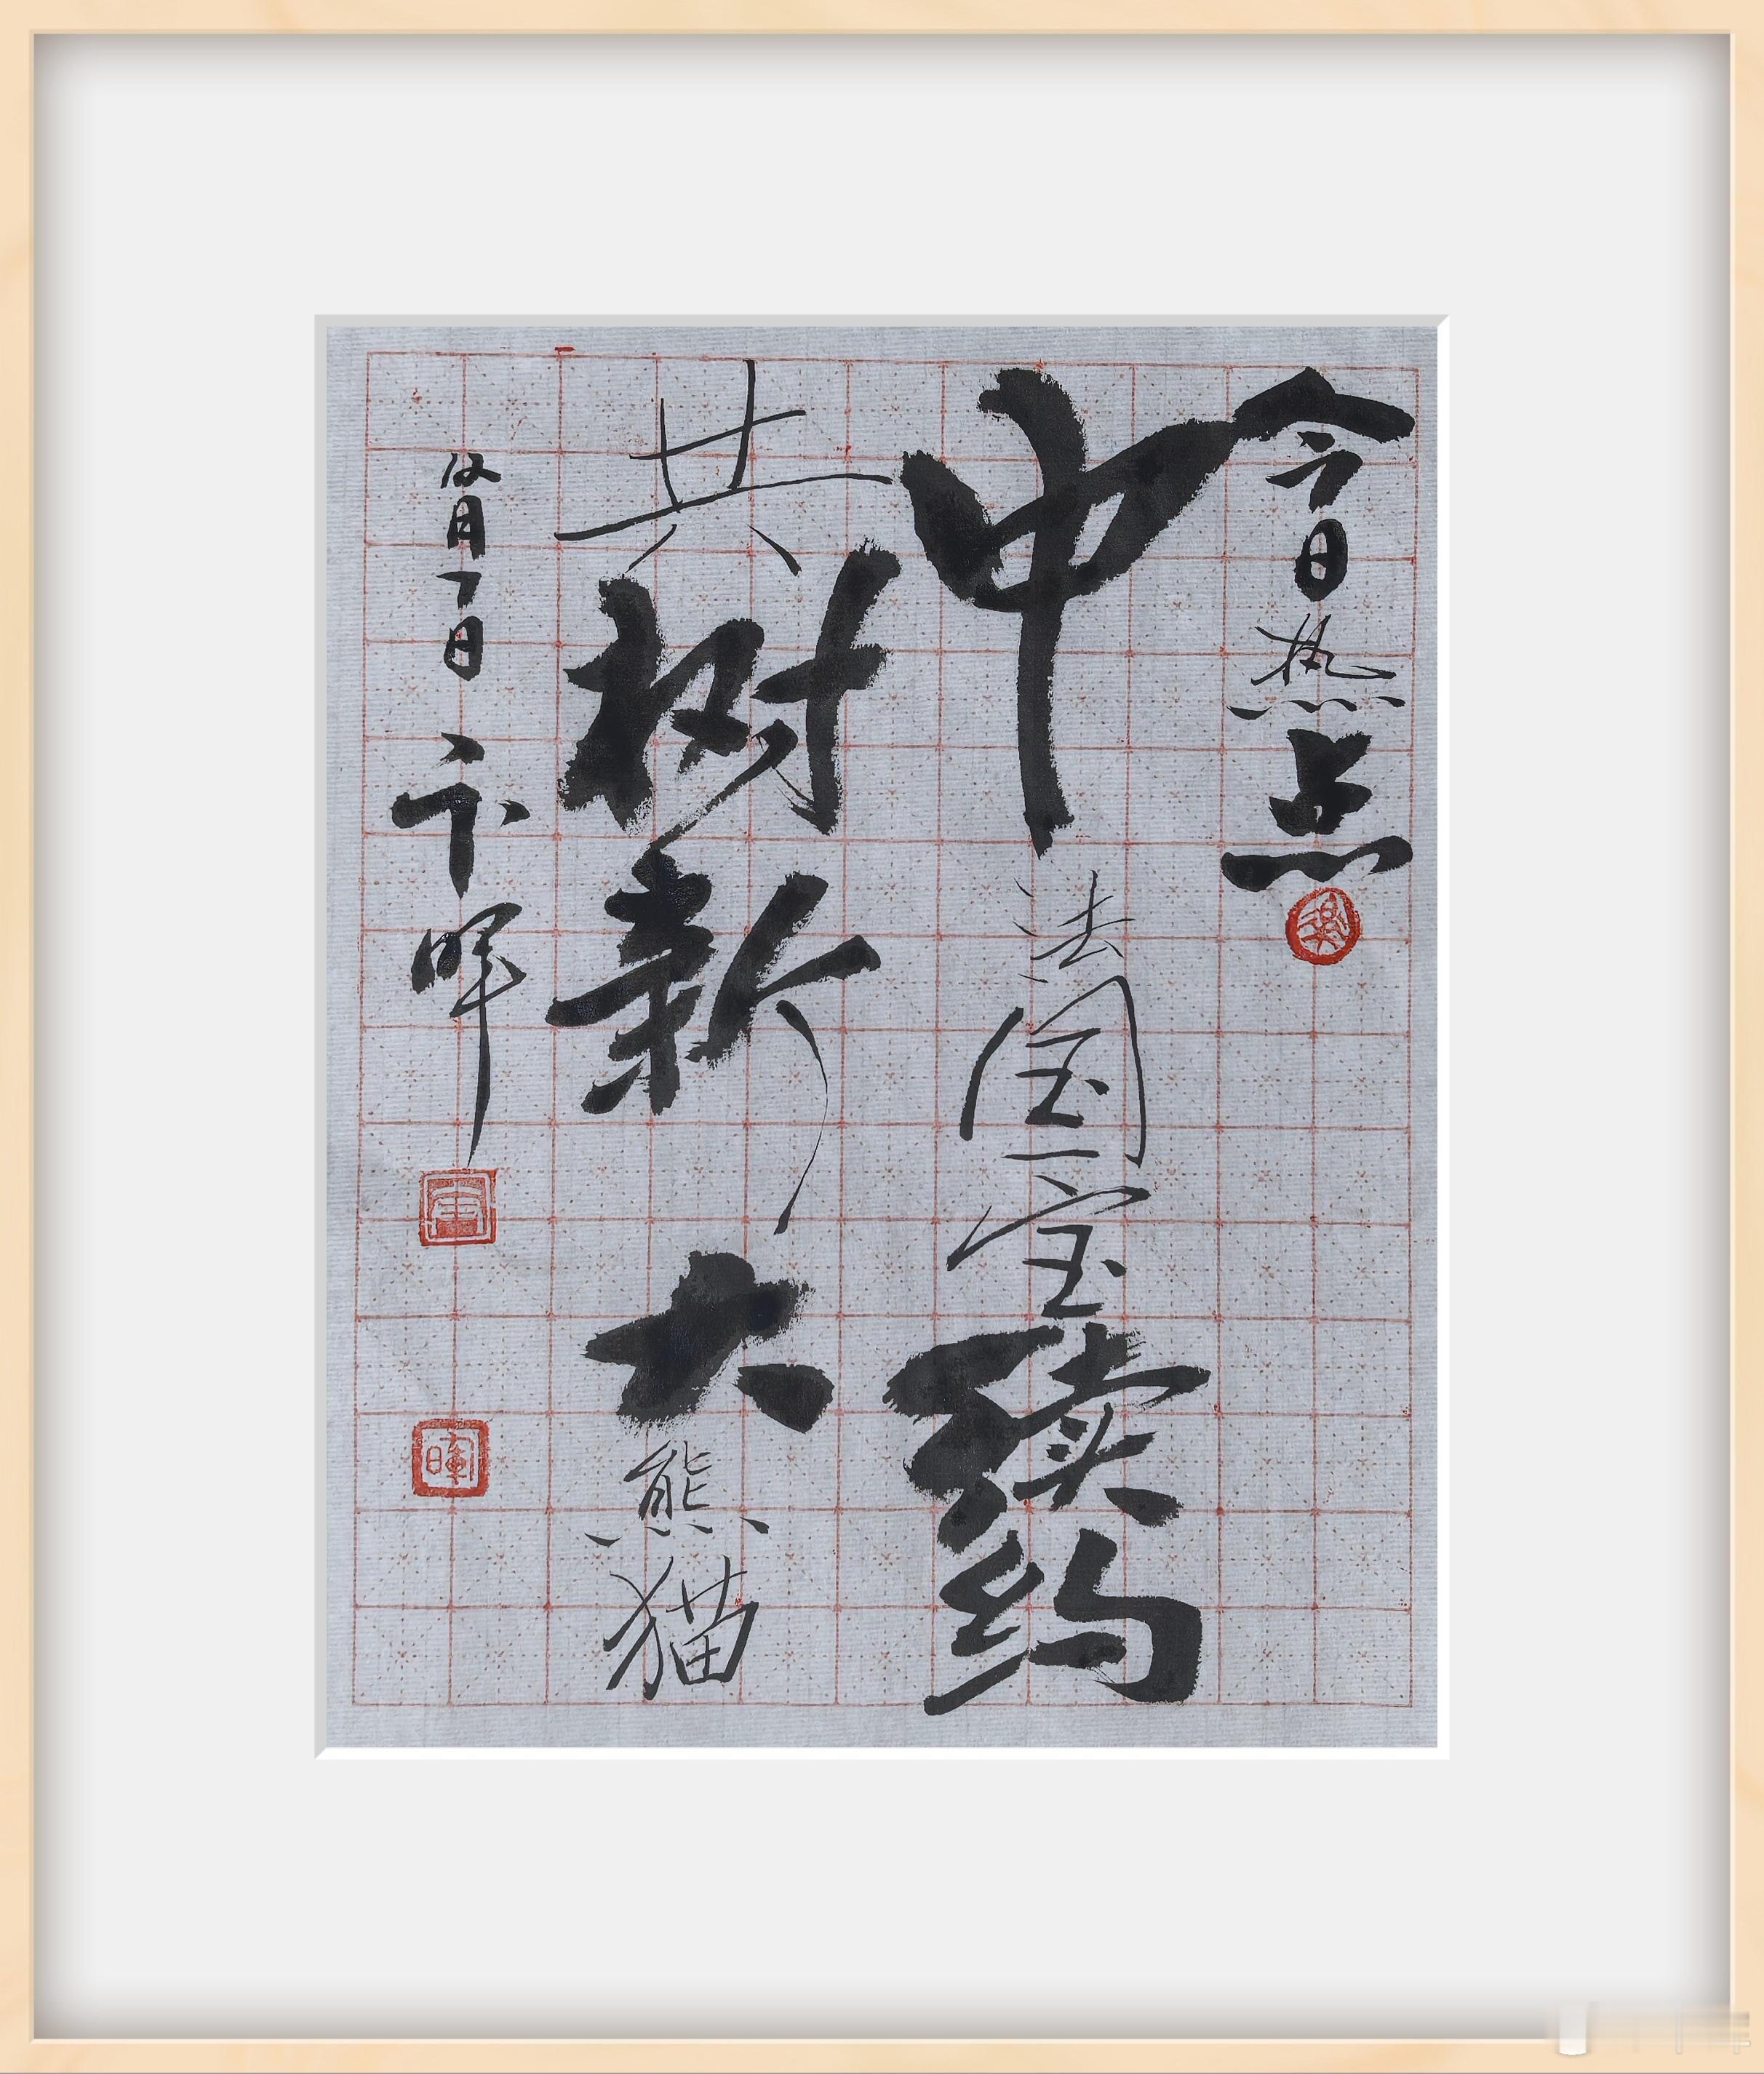 今日热点
中法国宝续约
共树新大熊猫
月
日卞晖
暉